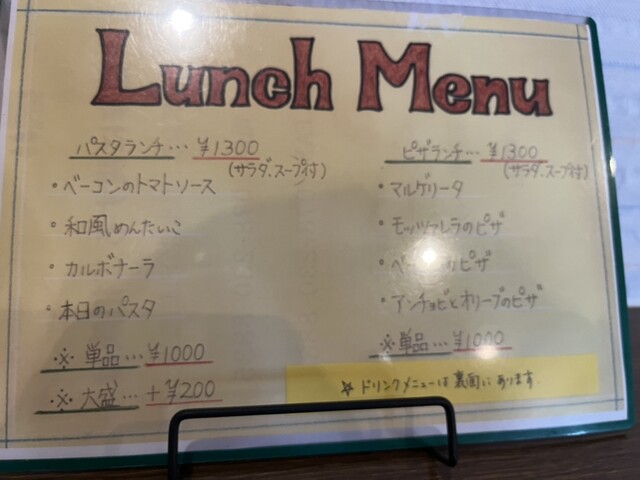 Lunch Menu
パスタランチ… ¥1300
(サラダ、スープ付)
・ベーコンのトマトソース
・和風めんたいこ
・カルボナーラ
・本日のパスタ
※ 単品… ¥1000
※ 大盛… +¥200
ピザランチ… ¥1300
(サラダ、スープ付)
・マルゲリータ
・モッツァレラのピザ
・ベー ピザ
・アンチョビとオリーブのピザ
※ 単品… ¥1000
☆ ドリンクメニューは裏面にあります。